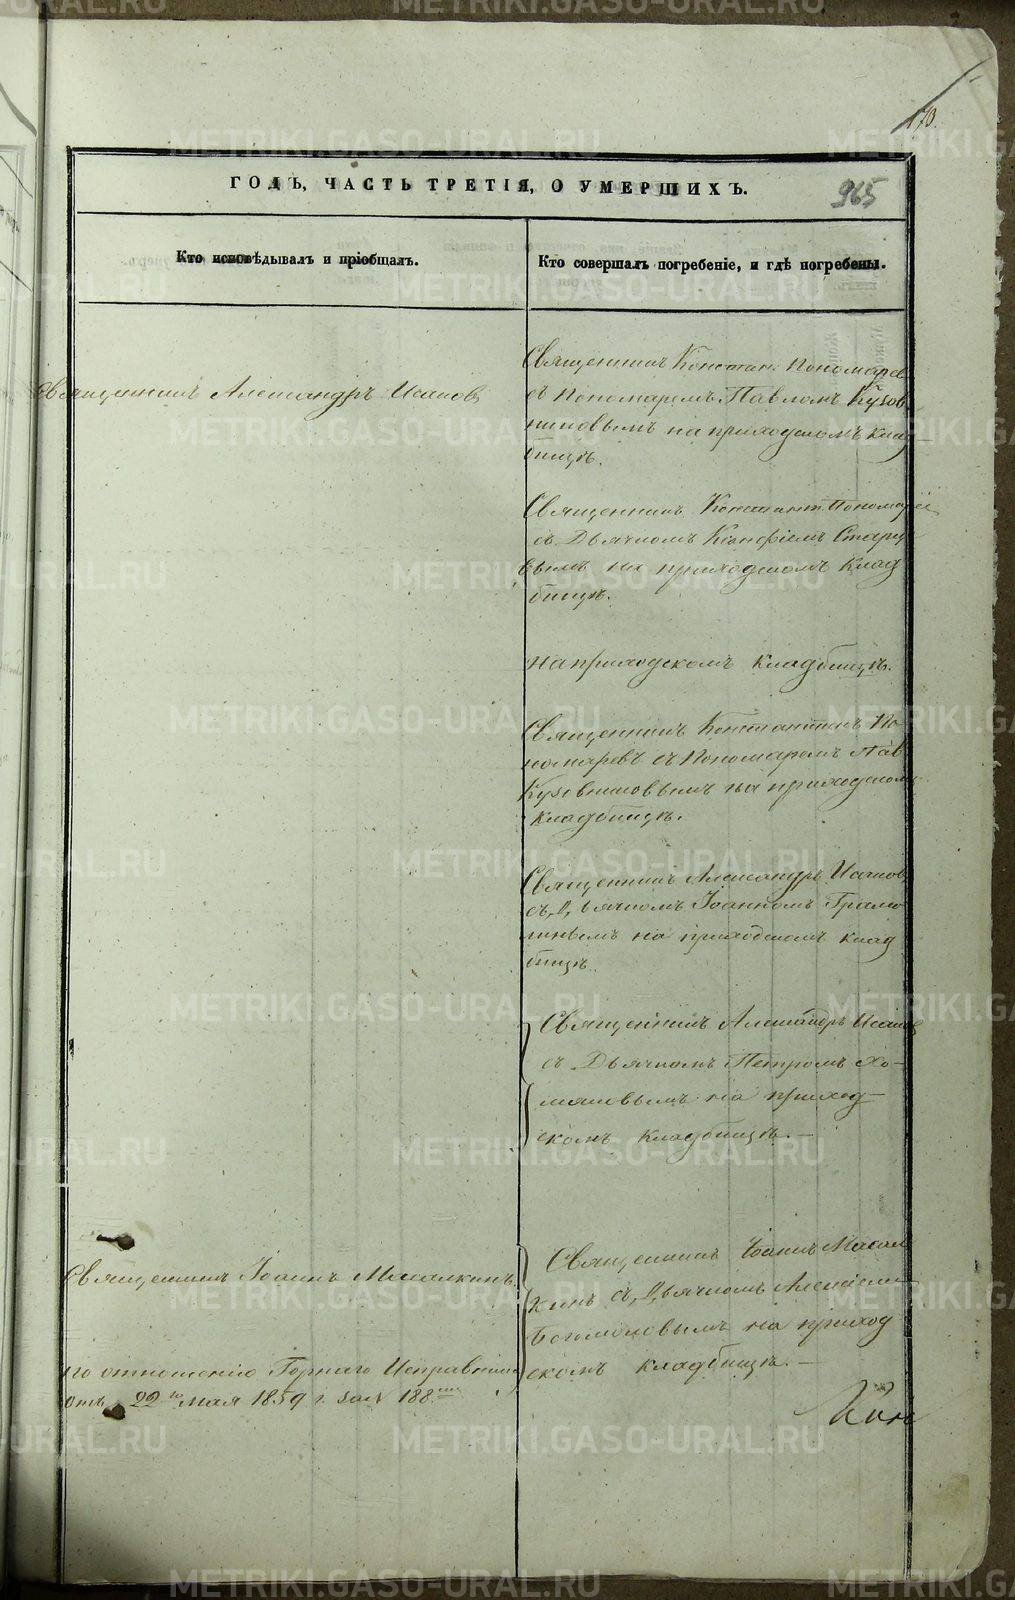 173.
ГОДЪ, ЧАСТЬ ТРЕТІЯ, О УМЕРШИХЪ.
965
Кто исповѣдывалъ и пріобщалъ.
Кто совершалъ погребеніе, и гдѣ погребены.
Священникъ Александръ Исаковъ
Священникъ Констан. Пономарев
съ Пономаремъ Павломъ Кузов
никовымъ на приходскомъ клад-
бищѣ.
Священникъ Константи Пономарев
съ Дьячкомъ
вымъ на приходскомъ клад
бищѣ.
на приходскомъ кладбищѣ.
Священникъ Константинъ По
номаревъ съ Пономаремъ Пав
Кузовниковымъ на приходском
кладбищѣ.
Священникъ Александръ Исаков
съ Дьячкомъ Іоанномъ
на приходскомъ клад
бищѣ.
Священникъ Александръ Исаков
съ Дьячкомъ Петромъ Хо-
мяковымъ на приход-
скомъ кладбищѣ.—
Священникъ Іоаннъ Масалкинъ.
Священникъ Іоаннъ Масал
кинъ съ Дьячкомъ Алексіем
Богомоловымъ на приход
скомъ кладбищѣ.—
по отношенію Горнаго Исправника
отъ 22го мая 1859 г. за № 188
METRIKI.GASO-URAL.RU